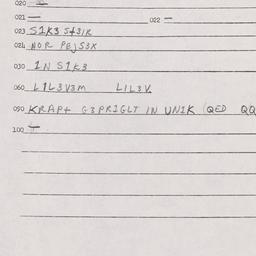 020 —
021 — 022 —
023 S1K3 S43IR
024 NOR PEJS3X
030 1N S1K3
060 L1L3V3M L1L3V.
090 KRAP+ G3PR1GLT IN UN1K (QED QQ
100 —